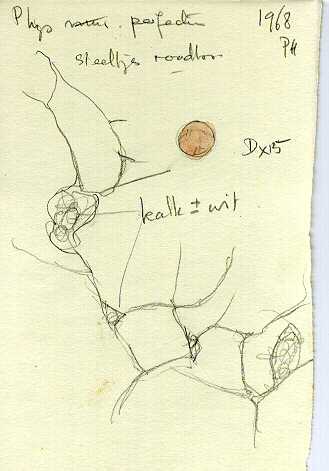 Phys perfectum 1968
PH
steeltjes roodbr
D x 125
kalk ± wit